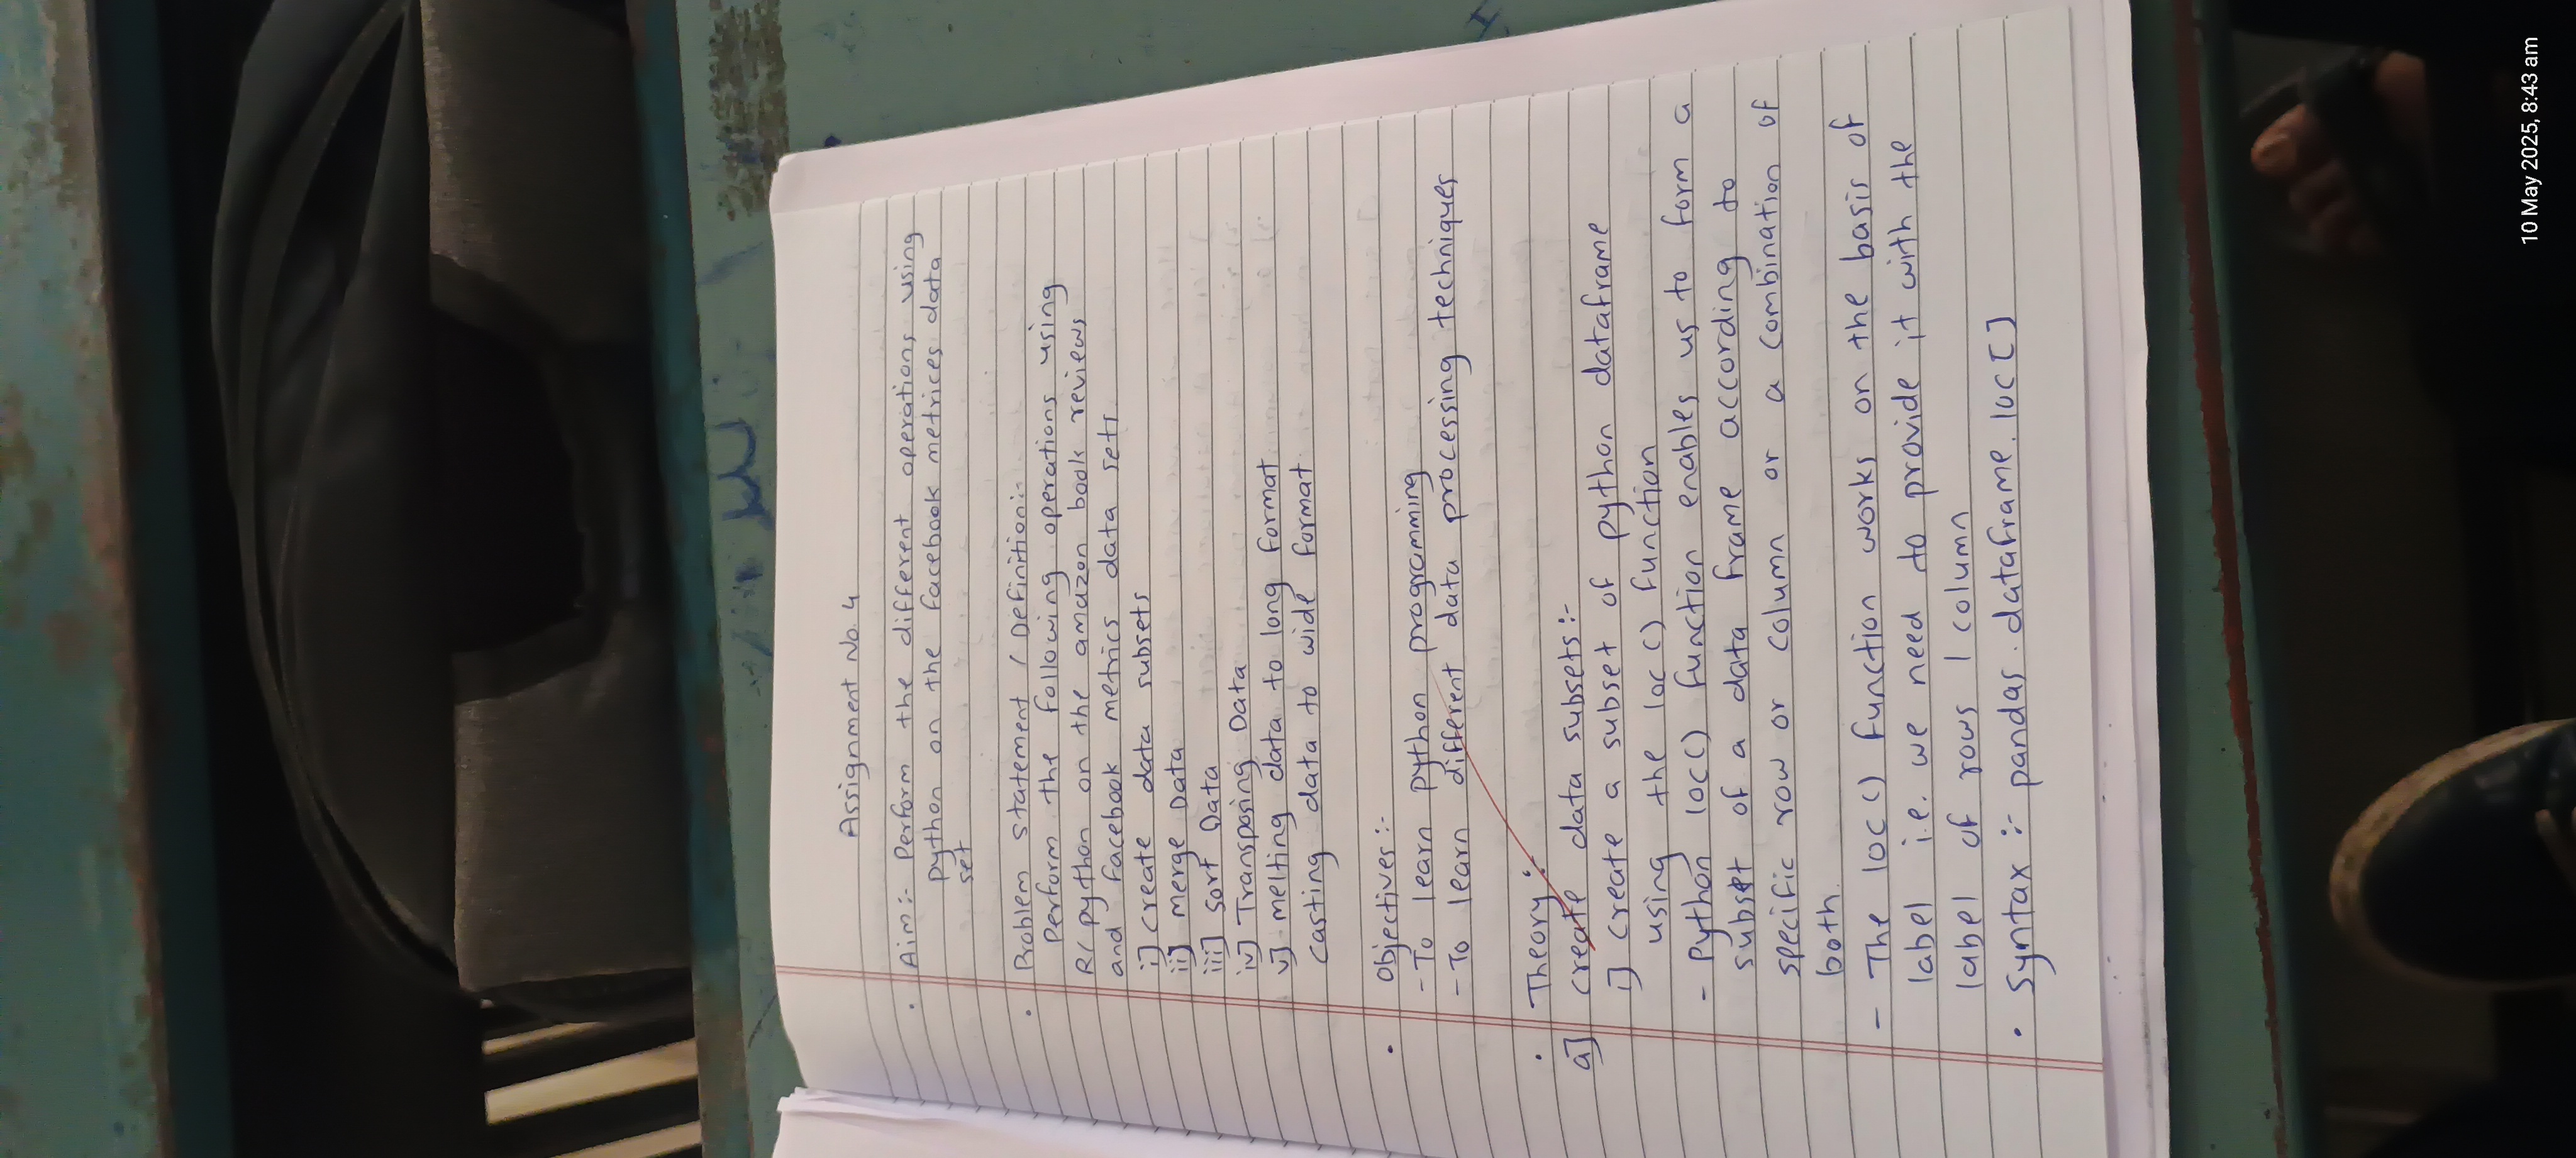 Assignment No. 4
• Aim:- Perform the different operations using
python on the facebook metrices data
set
• Problem statement / Definition:-
Perform the following operations using
R/ python on the amazon book reviews
and facebook metrics data sets
i] create data subsets
ii] merge Data
iii] sort Data
iv] Transposing Data
v] melting data to long format
casting data to wide format
• Objectives :-
- To learn python programming
- To learn different data processing techniques
• Theory :-
a] create data subsets:-
i] create a subset of python dataframe
using the loc() function
- Python loc() function enables us to form a
subset of a data frame according to
specific row or column or a combination of
both.
- The loc() function works on the basis of
label i.e. we need to provide it with the
label of rows / column
• Syntax :- pandas.dataframe.loc[]
10 May 2025, 8:43 am